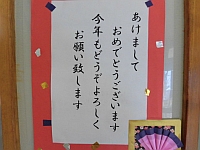 あけまして
おめでとうございます
今年もどうぞよろしく
お願い致します